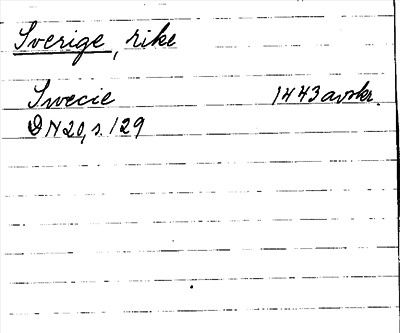 Sverige, rike
Swecie 1443 avskr.
DN 20, s. 129